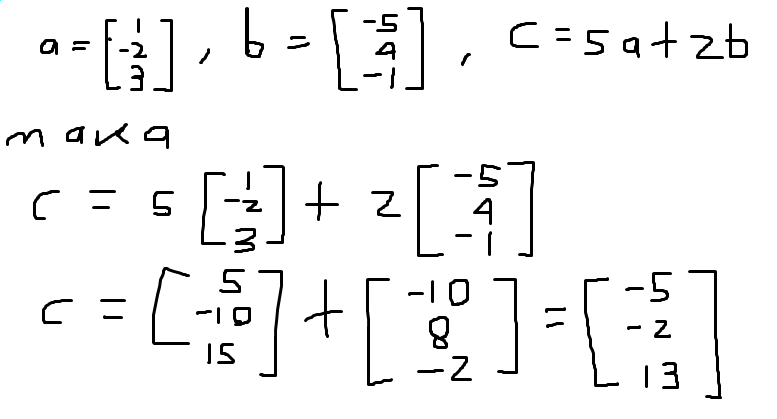 a = [1 -2 3], b = [-5 4 -1], c = 5a + 2b
maka
c = 5 [1 -2 3] + 2 [-5 4 -1]
c = [5 -10 15] + [-10 8 -2] = [-5 -2 13]